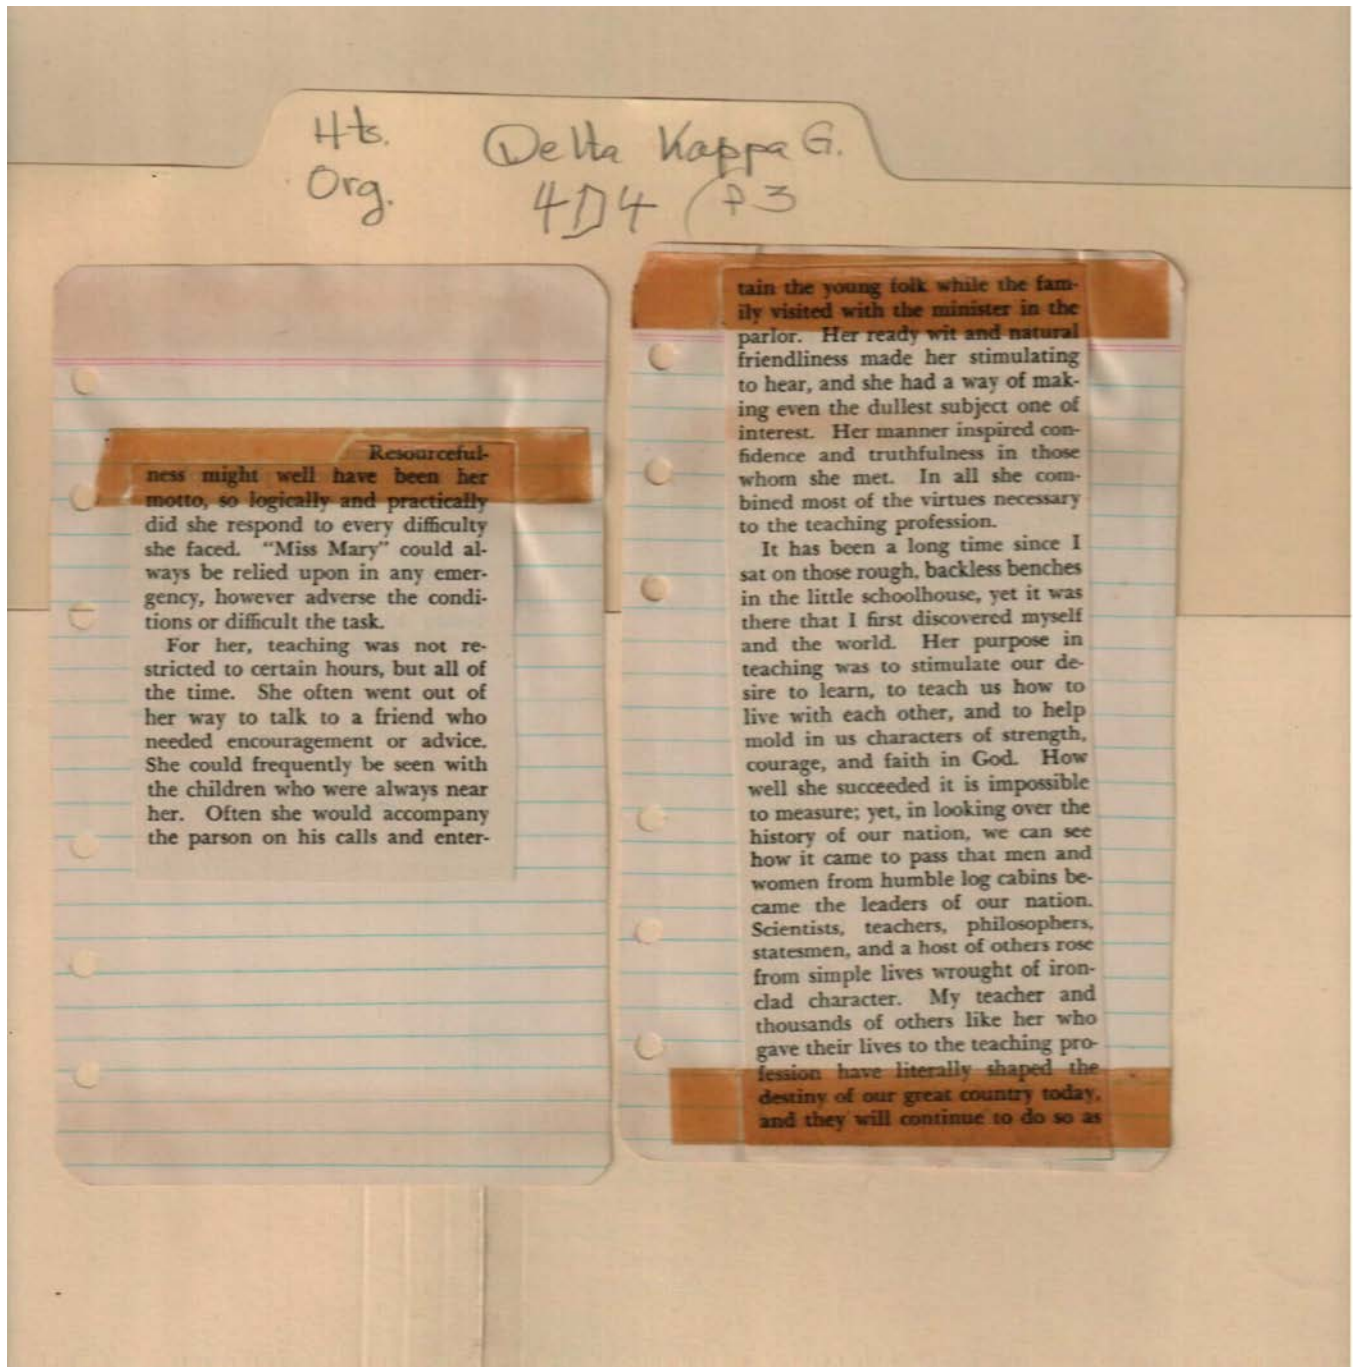 Hts. Delta Kappa G.
Org. 4D4 (P3
Resourceful-
ness might well have been her
motto, so logically and practically
did she respond to every difficulty
she faced. "Miss Mary" could al-
ways be relied upon in any emer-
gency, however adverse the condi-
tions or difficult the task.
For her, teaching was not re-
stricted to certain hours, but all of
the time. She often went out of
her way to talk to a friend who
needed encouragement or advice.
She could frequently be seen with
the children who were always near
her. Often she would accompany
the parson on his calls and enter-
tain the young folk while the fam-
ily visited with the minister in the
parlor. Her ready wit and natural
friendliness made her stimulating
to hear, and she had a way of mak-
ing even the dullest subject one of
interest. Her manner inspired con-
fidence and truthfulness in those
whom she met. In all she com-
bined most of the virtues necessary
to the teaching profession.
It has been a long time since I
sat on those rough, backless benches
in the little schoolhouse, yet it was
there that I first discovered myself
and the world. Her purpose in
teaching was to stimulate our de-
sire to learn, to teach us how to
live with each other, and to help
mold in us characters of strength,
courage, and faith in God. How
well she succeeded it is impossible
to measure; yet, in looking over the
history of our nation, we can see
how it came to pass that men and
women from humble log cabins be-
came the leaders of our nation.
Scientists, teachers, philosophers,
statesmen, and a host of others rose
from simple lives wrought of iron-
clad character. My teacher and
thousands of others like her who
gave their lives to the teaching pro-
fession have literally shaped the
destiny of our great country today,
and they will continue to do so as